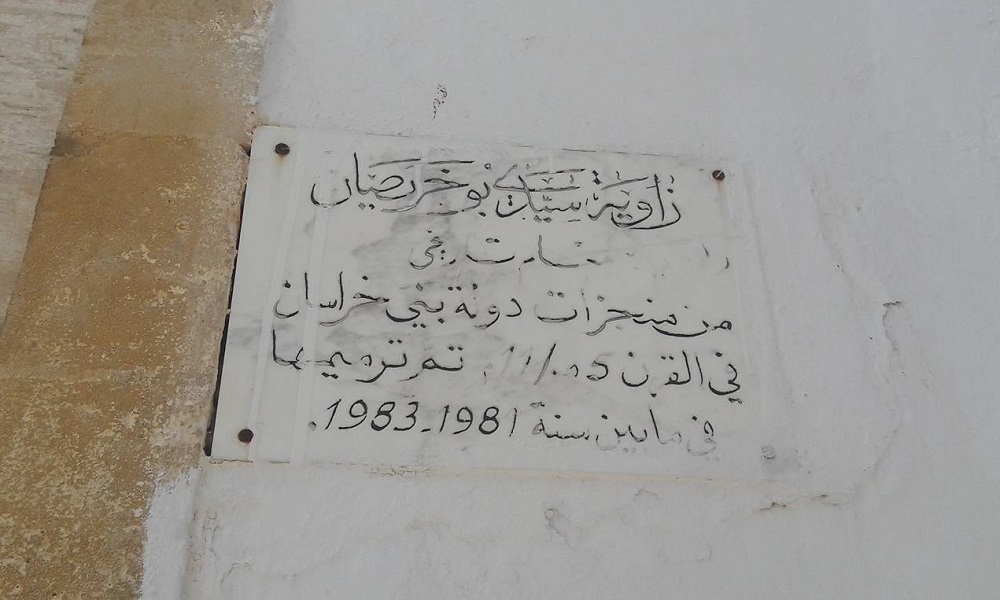 زاوية سيدي بوخرصيان
تاريخي
من منجزات دولة بني خراسان
في القرن 5هـ/11 تم ترميمها
في ما بين سنة 1981-1983.